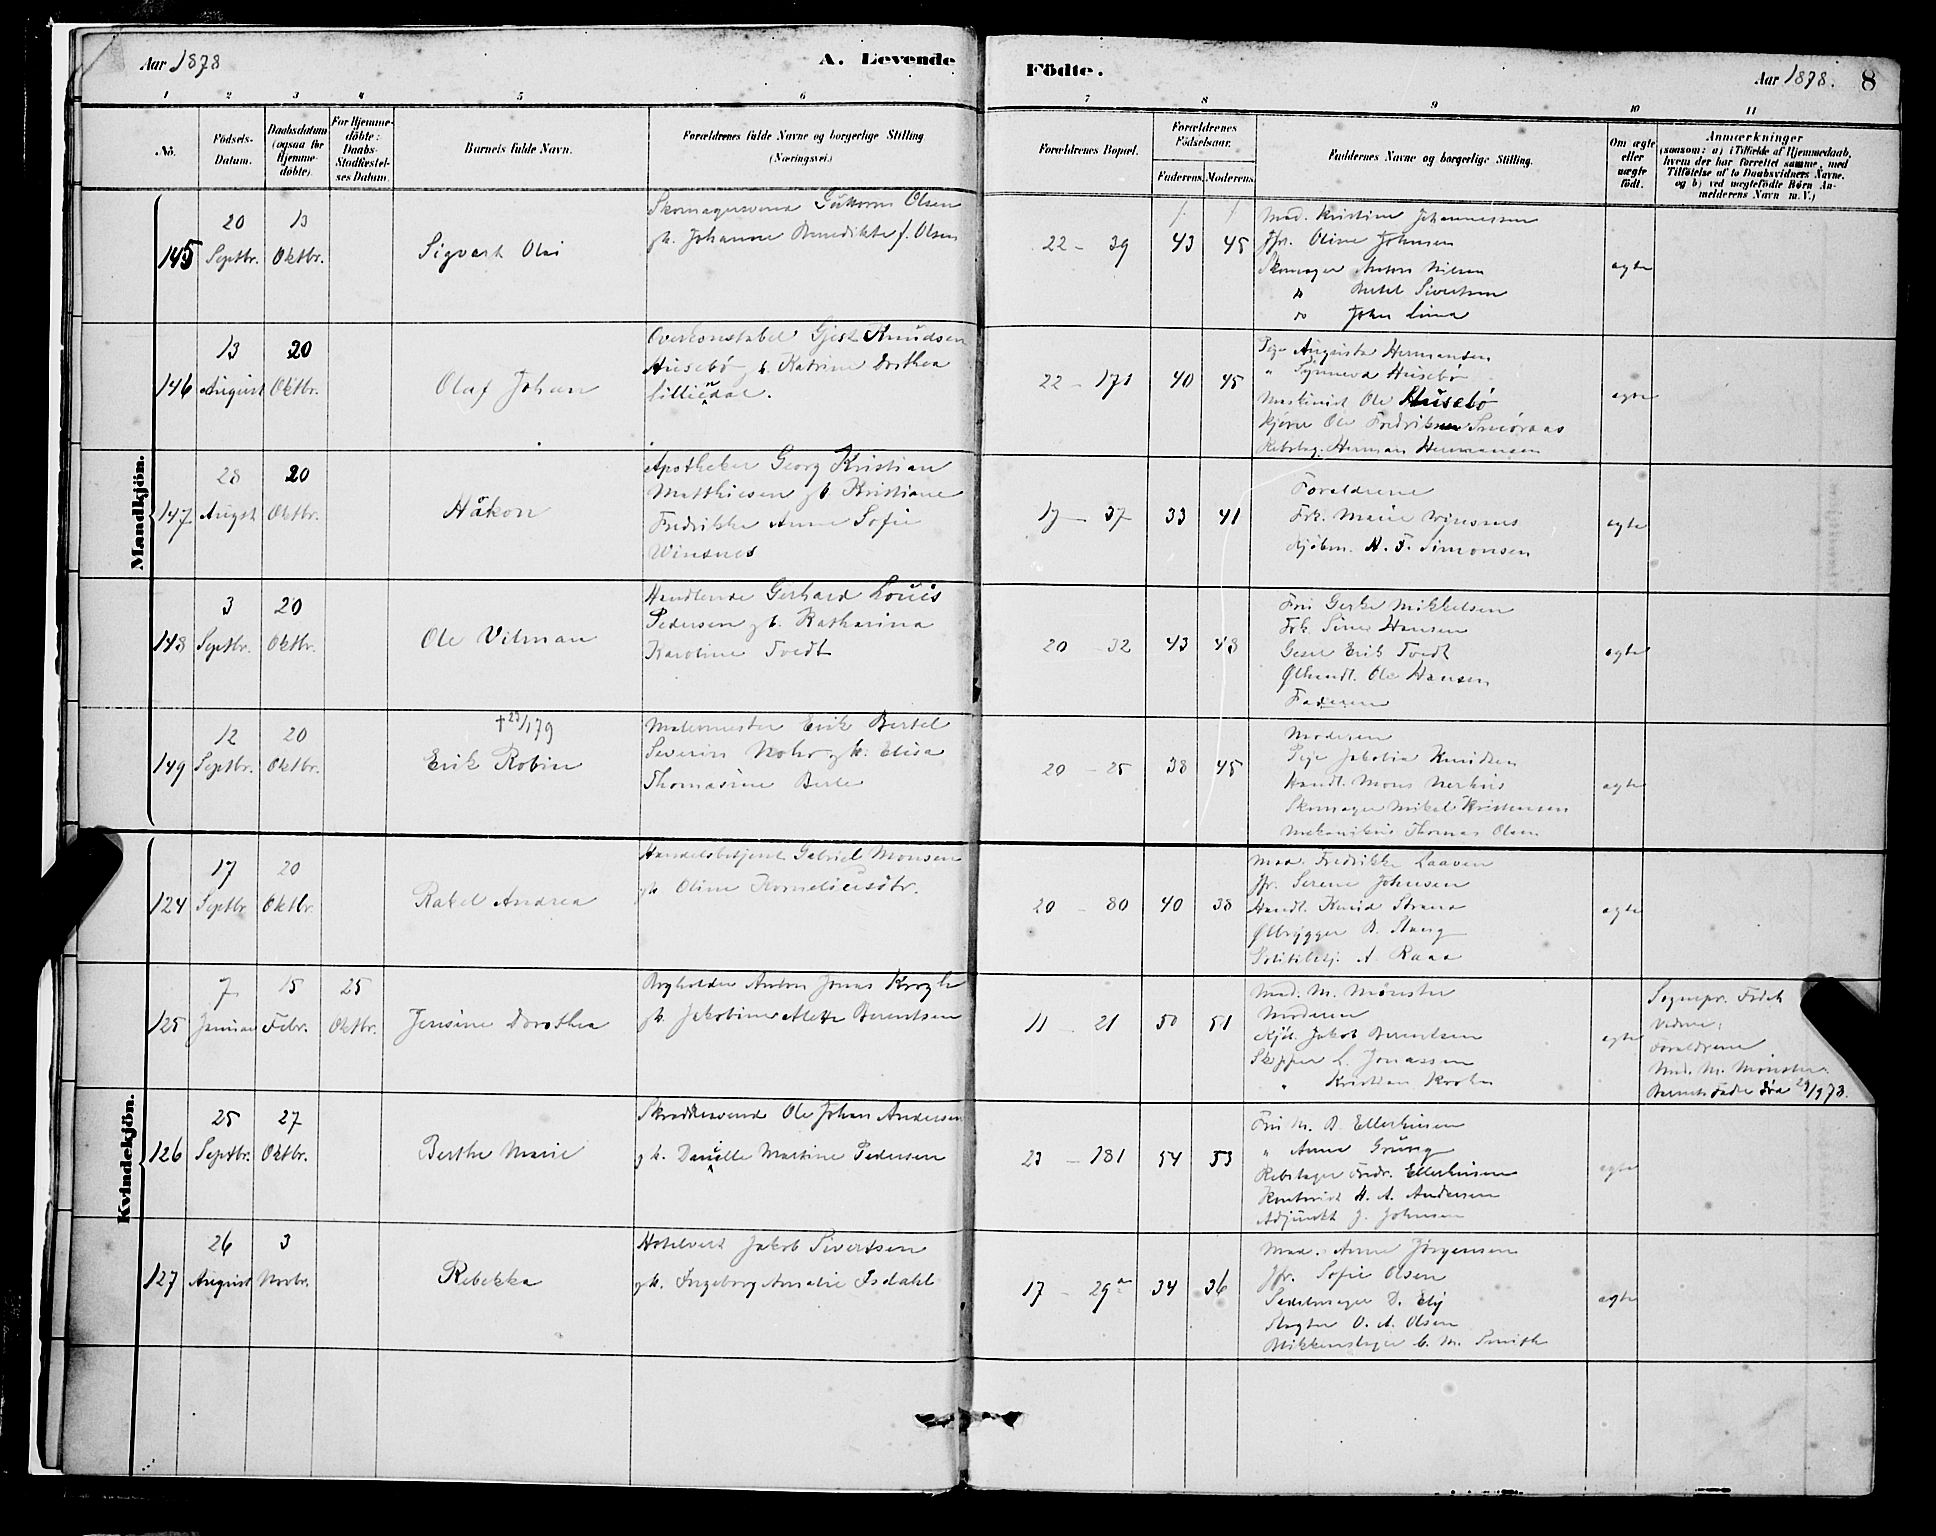 Aar 1878
A. Levende
Födte.
Aar 1878.
8
1 2 3 4 5 6 7 8 9 10 11
No.
Födsels-
Datum.
Daabsdatum
(ogsaa for
Hjemme-
döbte).
For Hjemme-
döbte:
Daabs-
Stadfæstel-
ses Datum.
Barnets fulde Navn.
Forældrenes fulde Navne og borgerlige Stilling
(Næringsvei.)
Forældrenes Bopæl.
Forældrenes
Födselsaar.
Faderens. Moderens.
Faddernes Navne og borgerlige Stilling.
Om ægte
eller
uægte
födt.
Anmærkninger
(saasom: a) i Tilfælde af Hjemmedaab,
hvem der har forrettet samme, med
Tilföielse af to Daabsvidners Navne.
og b) ved uægtefödte Börn An-
melderens Navn m. V.)
Mandkjön.
145
20
Septbr.
13
Oktbr.
Sigvart Olai
Olsen
gh. Johanne Benedikte f. Olsen
22 - 39
43
45
Mad. Kristine Johannessen
Jfr. Oline Johnsen
Skomager Anton Nilsen
" Bertel Sivertsen
" John Lima
ægte
146
13
August
20
Oktbr.
Olaf Johan
Overkonstabel Gjest Knudsen
Husebö g. h. Katrine Dorthea
Lilliendal.
22 - 171
40
45
Pige Augusta Hermansen
" Synneva Husebö
Maskinist Ole Husebö
Ole Fredriksen Smöraas
Rebslag. Herman Hermansen
ægte
147
28
Augst
20
Oktbr.
Håkon
Apotheker Georg Kristian
Matthiesen gh Kristiane
Fredrikke Anne Sofie
Winsnes
17 - 37
33
41
Forældrene
Frk. Marie Winsnes
Kjöbm. H. F. Simonsen
ægte
148
3
Septbr.
20
Oktbr.
Ole Vilman
Handlende Gerhard Louis
Pedersen gh. Katharina
Karoline Tvedt
20 - 32
43
48
Fru Gerke Mikkelsen
Frk. Sine Hansen
Gesel Erik Tvedt
Ølhandl. Ole Hansen
Faderen
ægte
149
12
Septbr.
20
Oktbr.
† 23/1 79
Erik Robin
Malermester Erik Bertel
Severin Nohr gh. Elisa
Thomasine Berle
20 - 25
38
45
Moderen
Pige Jakobia Knudsen
Handl. Mons
Skomager Mikal Kristensen
Mekanikus Thomas Olsen
ægte
Kvindekjön.
124
17
Septbr
20
Oktbr.
Rakel Andrea
Handelsbetjent Gabriel Monsen
gh Oline Korneliusdtr.
20 - 80
40
38
Mad. Fredrikke Laaven
Jfr. Serene Johnsen
Handl. Knud Strand
Ølbrygger B.
Politibetj. A. Raaa
ægte
125
7
Januar
15
Febr.
25
Oktbr.
Jensine Dorothea
Anton Jonas Krogh
gh. Jakobine Alette Berentsen
11 - 21
50
51
Mad. M. Mönster
Moderen
Jakob Berentsen
Skipper L. Jonassen
" Kristian Krohn
ægte
Sognepr.
Vidner:
Forældrene
Mad. M. Mönster.
126
25
Septbr.
27
Oktbr.
Berthe Marie
Skræddersvend Ole Johan Andersen
gh. Danielle Martine Pedersen
23 - 181
54
53
Fru M. B. Ellerhusen
" Anna Grung
Rebslager Fredr. Ellerhusen
Kontorist H. A. Andersen
Adjunkt J. Johnsen
ægte
127
26
August
3
Novbr.
Rebekka
Hotelvert Jakob Sivertsen
gh. Ingeborg Amalie Isdahl
17 - 29 a
34
36
Mad. Anne Jörgensen
Jfr. Sofie Olsen
Sadelmager D. Elij
Slagter O. A. Olsen
Blikkenslager C. M. Smith
ægte